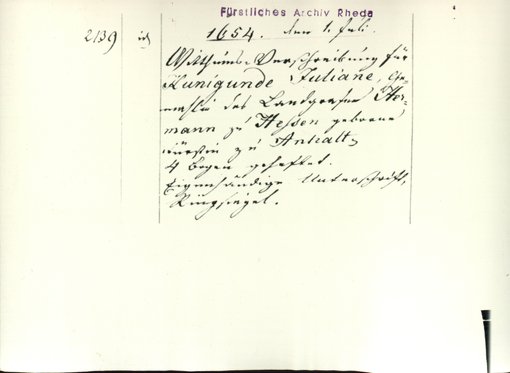 Fürstliches Archiv Rheda
2139 id 1654. den 1. Juli.
Witthums-Verschreibung für
Kunigunde Juliane, Ge-
mahlin des Landgrafen Her-
mann zu Hessen geborene
Fürstin zu Anhalt,
4 Bogen geheftet.
Eigenhändige Unterschrift,
Ringsiegel.